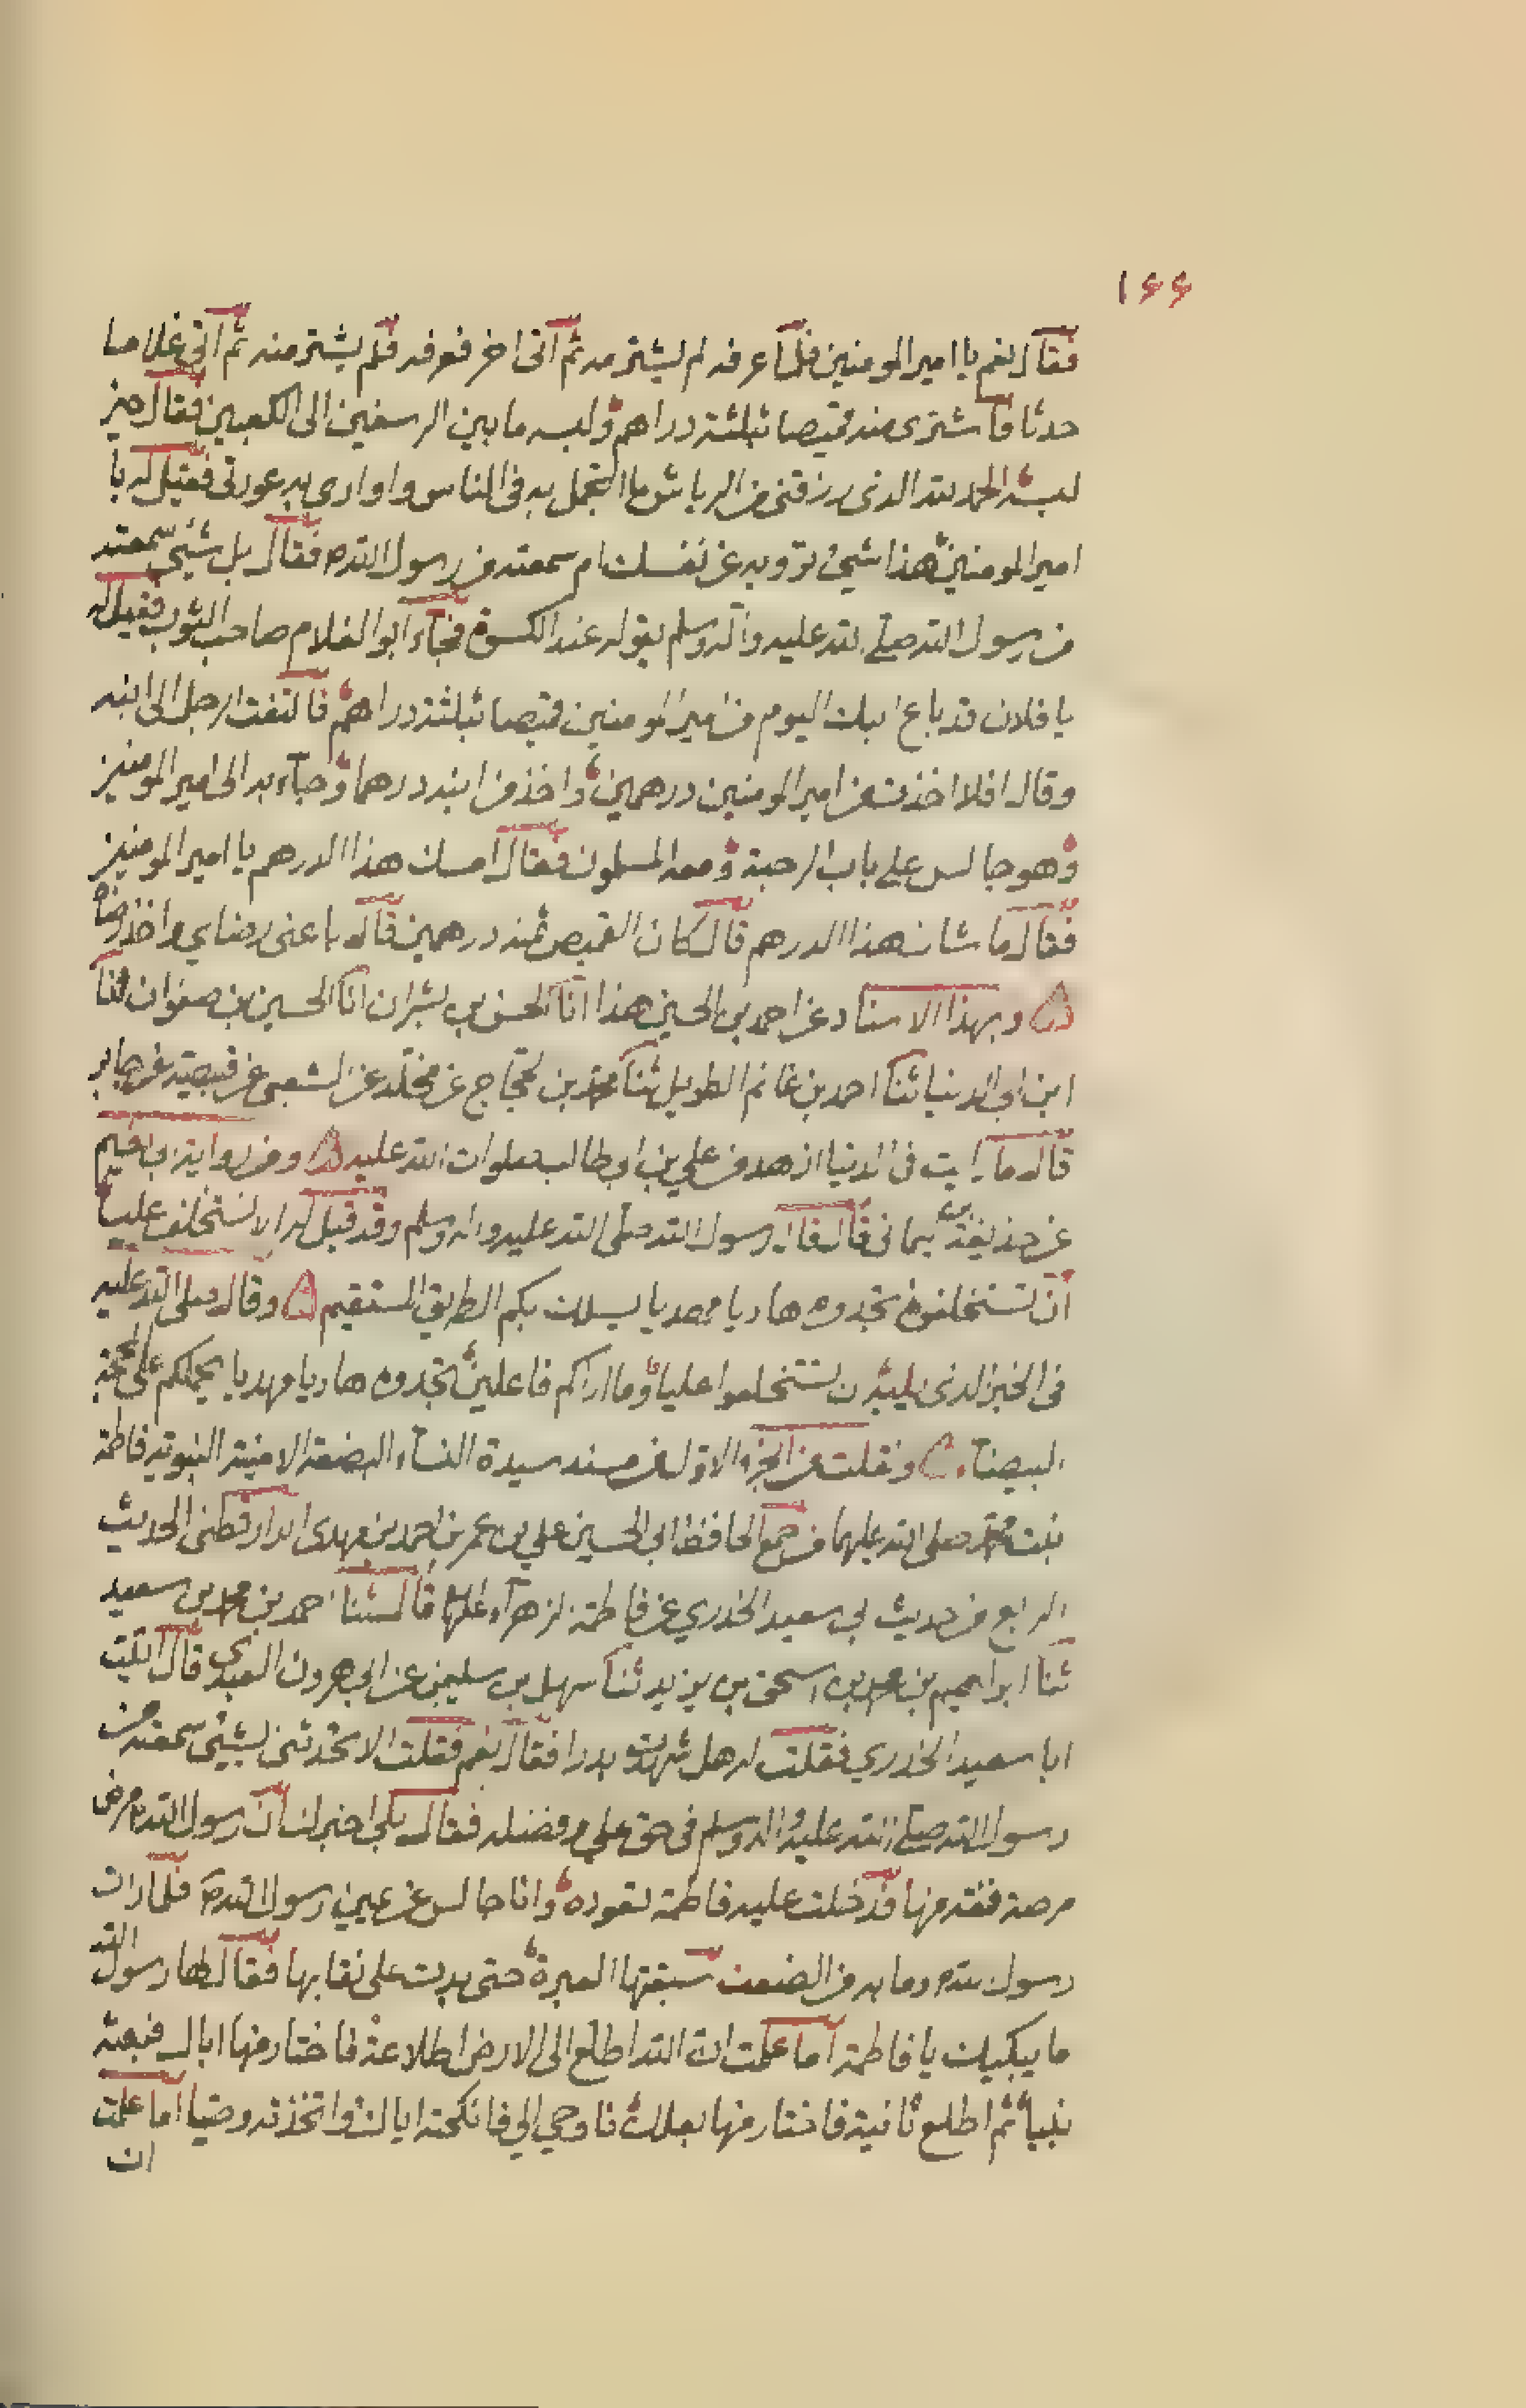 ١٦٦
فقال نعم يا امير المومنين فلما عرفه لم يشتر منه ثم اتى اخر فعرفه فلم يشتر منه ثم اتى غلاما
حدثا فاشترى منه قميصا بثلثة دراهم ولبسه ما بين الرسغين الى الكعبين فقال حين
لبسه الحمد لله الذى رزقنى من الرياش ما اتجمل به فى الناس واوارى به عورتى فقيل له يا
امير المومنين هذا شئ ترويه عن نفسك ام سمعته من رسول الله ص فقال بل شئ سمعته
من رسول الله صلى الله عليه واله وسلم يقوله عند الكسوة فجآء ابو الغلام صاحب الثوب فقيل له
يا فلان قد باع ابنك اليوم من امير المومنين قميصا بثلثة دراهم فالتفت الرجل الى ابنه
وقال افلا اخذت من امير المومنين درهمين واخذ من ابنه درهما وجآء به الى امير المومنين
وهو جالس على باب الرحبة ومعه المسلمون فقال امسك هذا الدرهم يا امير المومنين
فقال ما شان هذا الدرهم قال كان القميص ثمنه درهمين قال باعنى رضاي واخذ رضاه
وبهذا الاسناد عن احمد بن الحسين هذا انا الحسن بن بشران انا الحسين بن صفوان ثنا
ابن ابى الدنيا ثنا احمد بن غانم الطويل ثنا محمد بن الحجاج عن مخلد عن الشعبى عن قبيصة عن جابر
قال ما رايت فى الدنيا ازهد من علي بن ابى طالب صلوات الله عليه ومن رواية ابى نعيم
عن حذيفة بن يمانى قال قال رسول الله صلى الله عليه واله وسلم وقد قيل له الا تستخلف عليا
ان تستخلفوه تجدوه هاديا مهديا يسلك بكم الطريق المستقيم وقال صلى الله عليه
فى الخبر الذى يليه ان تستخلفوا عليا وما اراكم فاعلين تجدوه هاديا مهديا يحملكم على المحجة
البيضآء ونقلت من الجزء الاول من مسند سيدة النسآء البضعة الامينة النبوية فاطمة
بنت محمد صلى الله عليهما من جمع الحافظ ابى الحسين علي بن عمر بن احمد بن مهدى الدارقطنى الحديث
الرابع من حديث ابى سعيد الخدري عن فاطمة الزهرآء عليها قال ثنا احمد بن محمد بن سعيد
ثنا ابراهيم بن محمد بن اسحق بن يزيد ثنا سهل بن سليمن عن ابى هرون العبدى قال اتيت
ابا سعيد الخدري فقلت له هل شهدت بدرا فقال نعم فقلت الا تحدثنى بشئ سمعته من
رسول الله صلى الله عليه واله وسلم فى حق علي وفضله فقال بلى اخبرك ان رسول الله ص مرض
مرضة فنقه منها فدخلت عليه فاطمة تعوده وانا جالس عن يمين رسول الله ص فلما رات
رسول الله ص وما به من الضعف سبقتها العبرة حتى بدت على نقابها فقال لها رسول الله
ما يبكيك يا فاطمة اما علمت ان الله اطلع الى الارض اطلاعة فاختار منها اباك فبعثه
نبيا ثم اطلع ثانية فاختار منها بعلك فاوحي الي فانكحته اياك واتخذته وصيا اما علمت
ان